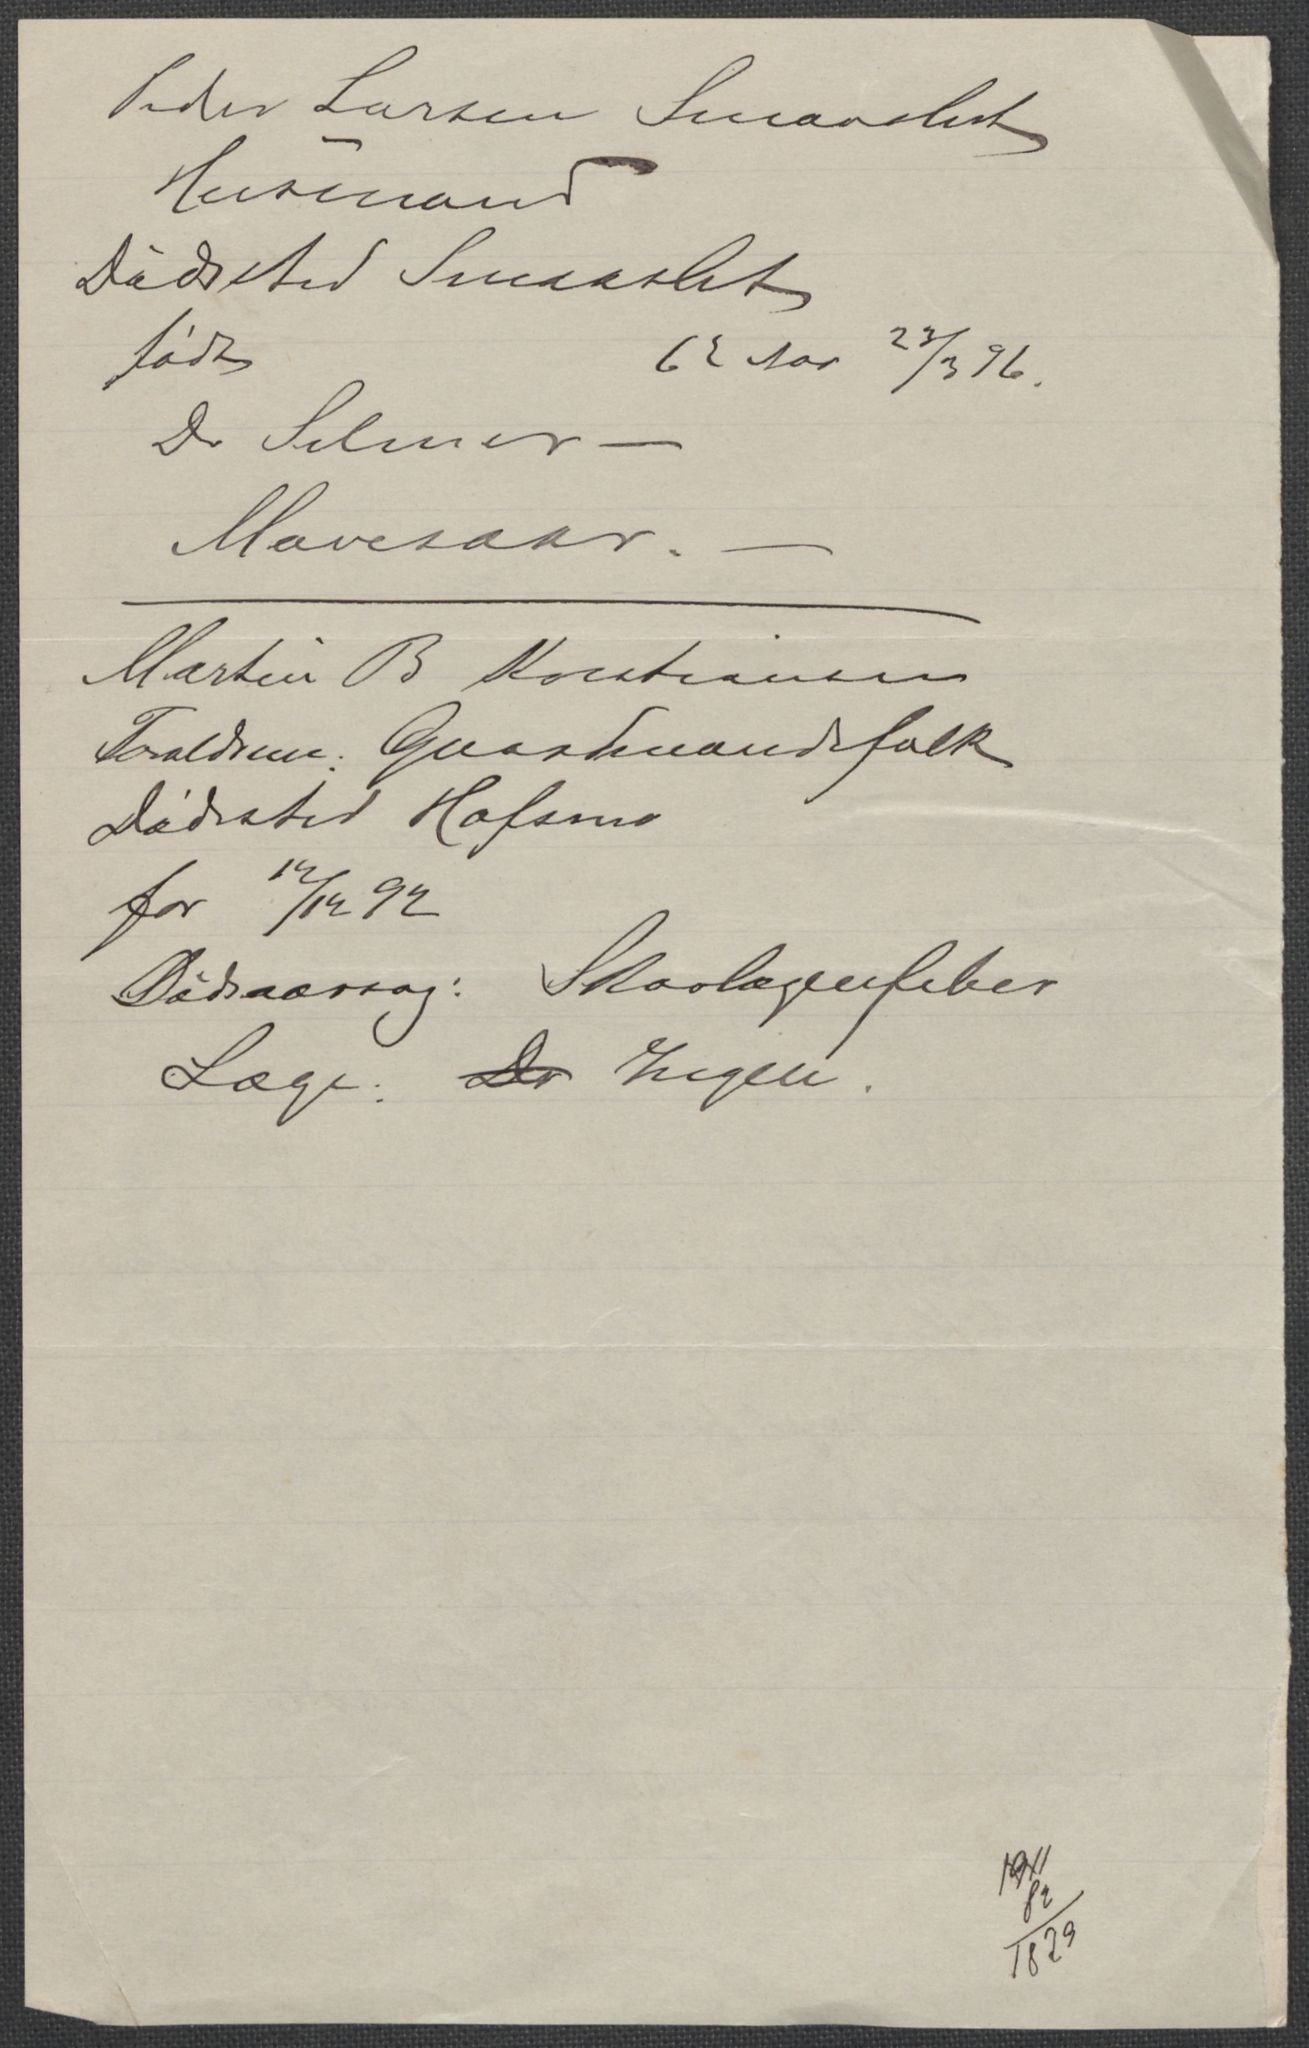 Peder Larsen Smaaslet
Husmand
Dödssted Smaaslet
födt 62 Aar 23/3 96.
Dr Selmer —
Mavesaar. —
Martin B Kristiansen
Foraldrene: Gaardmandsfolk
Dödssted Hofsmo
før 12/12 92
Dödsaarsag: Skarlagensfeber
Læge: Dr Ingen.
1911
82
1829